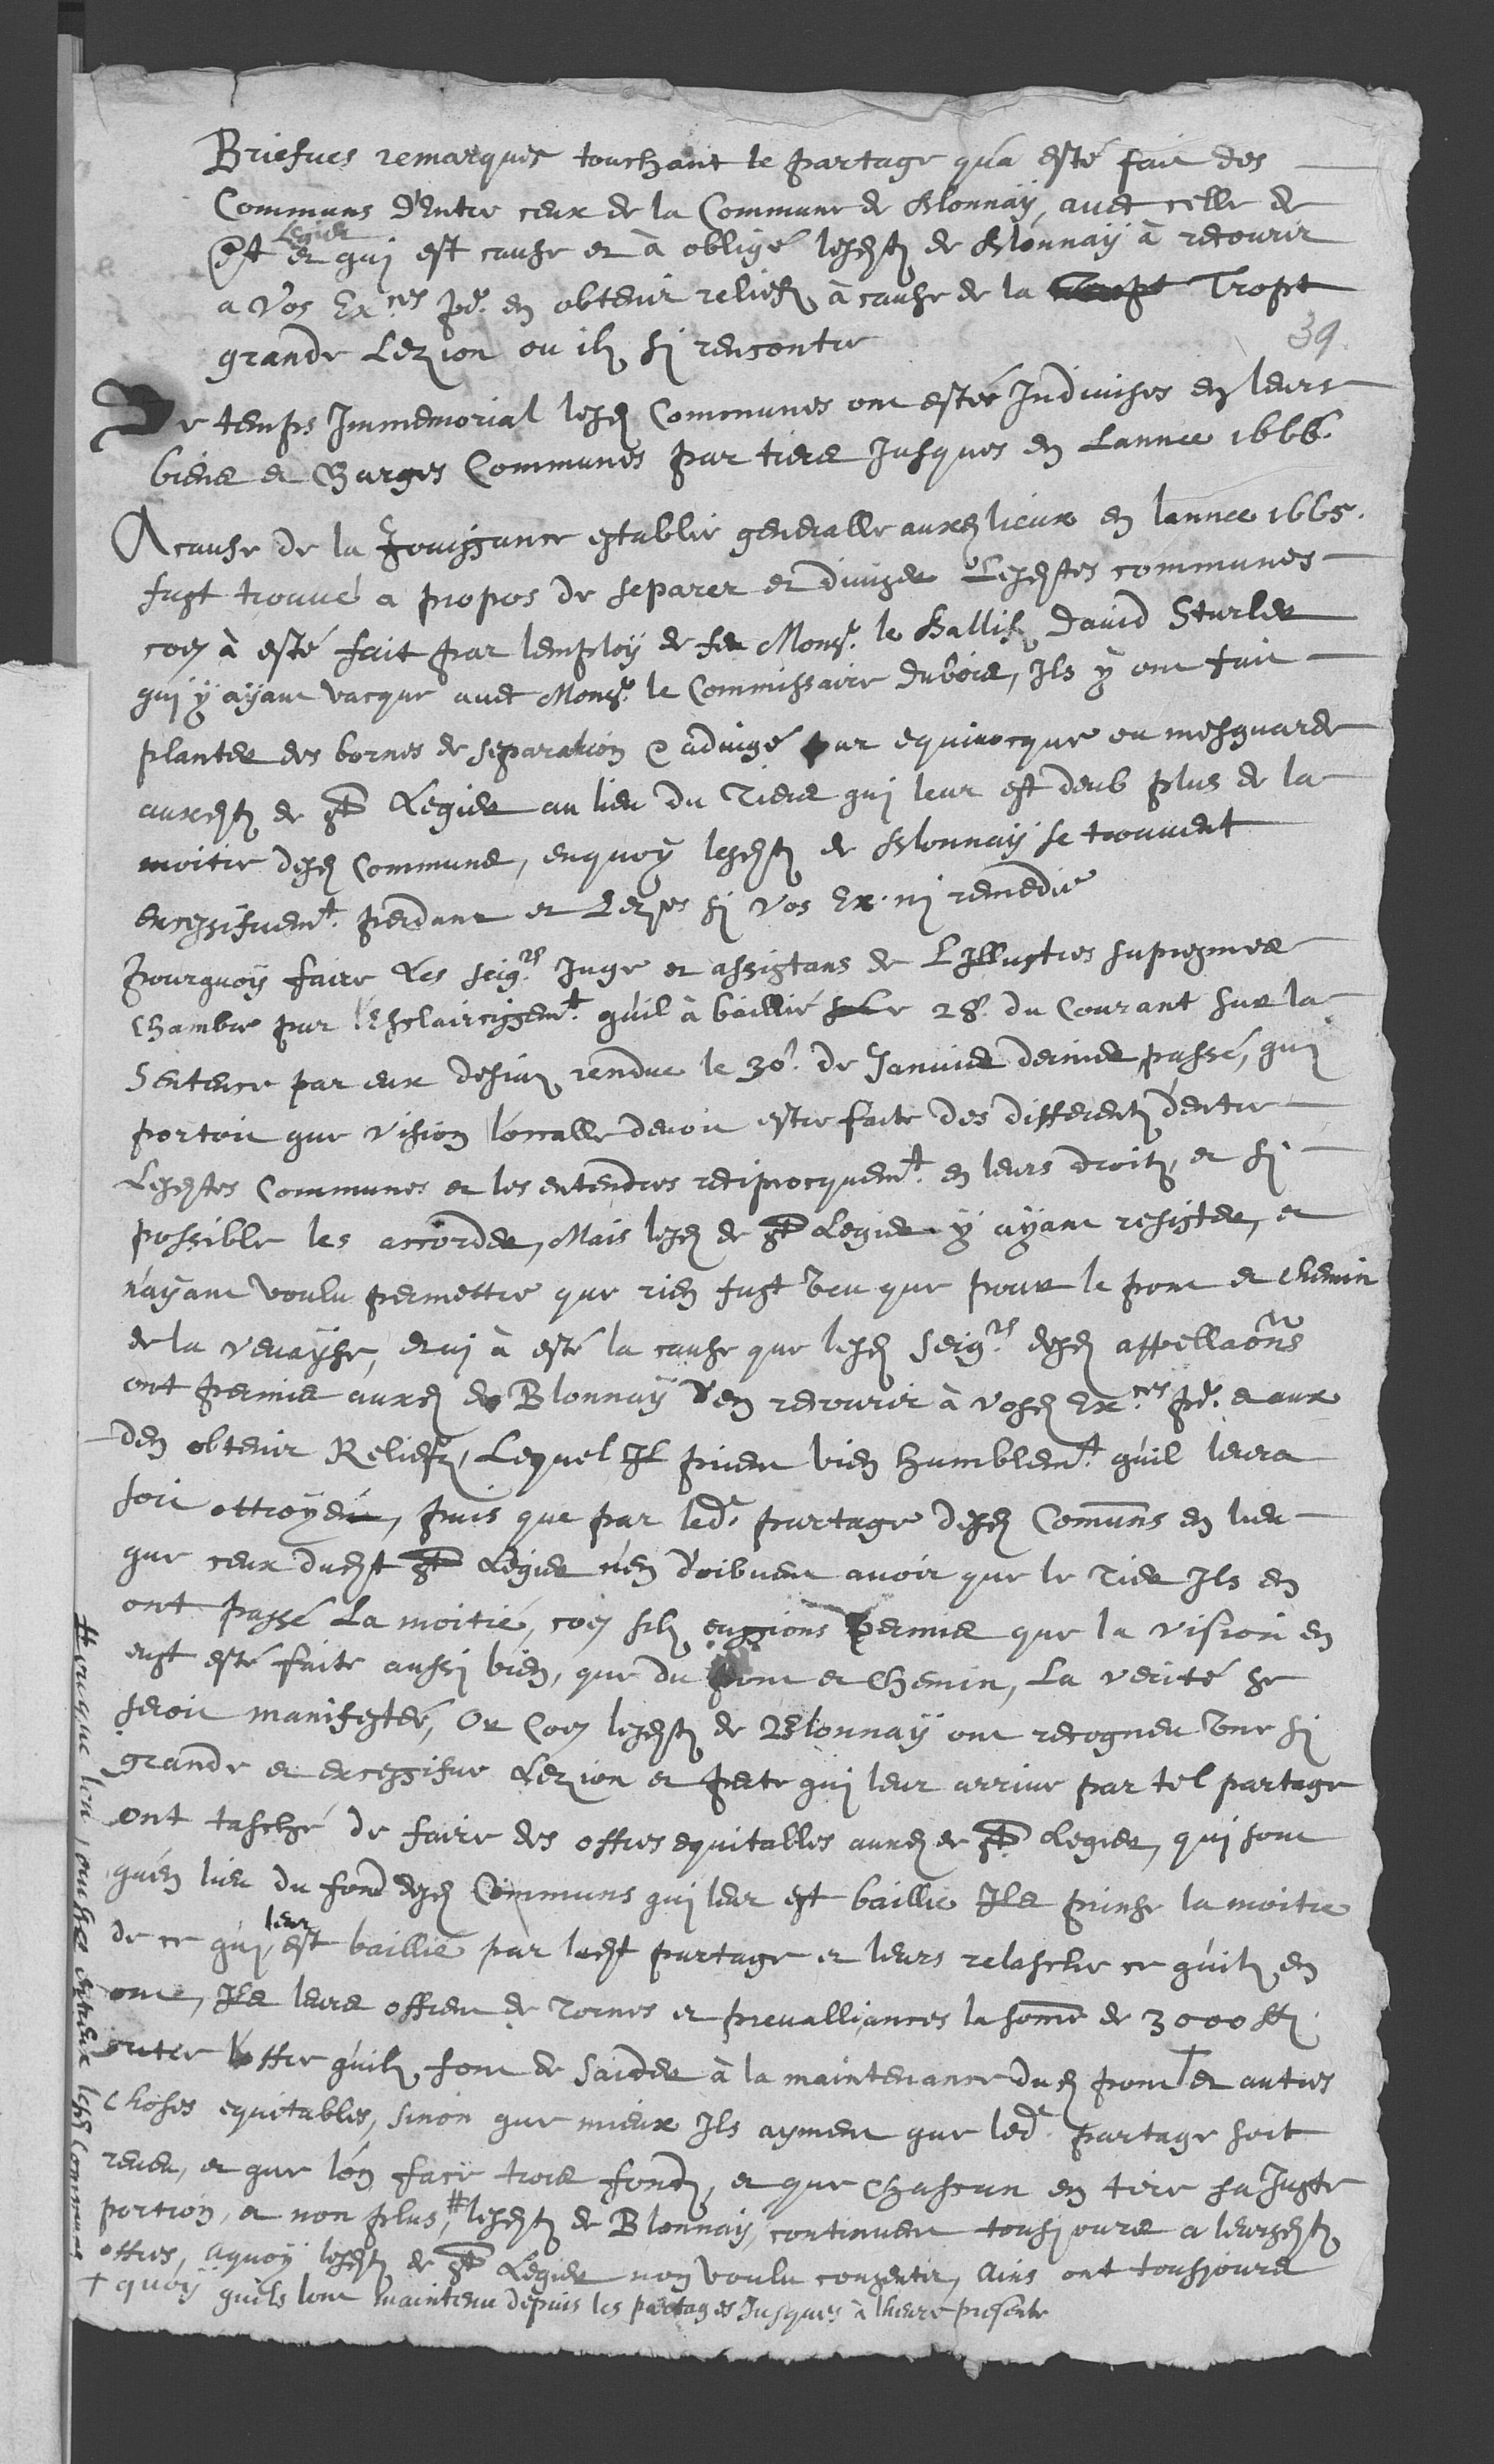 Briefues remarques touchant le partage qu'a esté fait des
Communs d'Entre ceux de la Commune de Blonnay, auec celle de
St Legier et qui est cause et à obligé lesdts de Blonnay à recourir
a Vos Ex.ces pr. en obtenir relief, à cause de la Tropt
grande Lezion ou ilz si rencontre
39.
De temps Immemorial lesd Communes ont estée Indiuises en leurs
biens et Charges Communes par tiers Jusques en Lannee 1666.
A cause de la Jouissance establie generalle auxd lieux en lannee 1665.
fust trouué a propos de separer et diuiser Lesdttes communes
coe à esté fait par lemploy de feu Monsr. le Ballif, Dauid Sturler
qui y ayant vacque auec Monsr. le Commissaire dubois, Ils y ont fait
planter des bornes de separation & adiugé par equiuocque ou mesguarde
auxdts de St Legier au lieu du Tiers qui leur est deub plus de la
moitie desd Communs, enquoy lesdts de Blonnay se trouuent
excessifuemt. perdant et Lezes si Vos Ex. ni remedie
Pourquoy faire Les seigrs Juge et assistans de L'Illustres supresmes
Chambre par l'Esclaircissemt. quil à baillié le 28e. du Courant sur la
Sentence par eux desia rendue le 30e. de Januier dernier passé, qui
portoit que vision localle deuoit estre faite des differents d'entre
Lesdttes Communes et les entendres reciprocquemt. en leurs droits, et si
possible les accorder, Mais lesd de St Legier y ayant resister, et
n'ayant voulu permettre que rien fust veu que pour le pont et chemin
de la Veuayse, et ui à esté la cause que lesd Seigrs desd appellaõns
ont permis auxd de Blonnay d'en recourir à vosd Ex.ces pr. eaux
den obtenir Relief, Lequel Il prient bien humblemt. qu'il leura
soit ottroyeé, puis que par ledt. partage desd Comuns en lieu
que ceux dudt St Legier n'en d'oibuent auoir que le Tier Ils en
ont passé La moitié, coe silz eussions permis que la vision en
eust esté faite aussi bien, que du pont et Chemin, La verité se
seroit manifesteé, Or Coe lesdts de Blonnay ont recogneu vne si
grande et excessiue Lezion et perte qui leur arriue par tel partage
ont tasché de faire des offres equitalles auxd de St Legier, qui sont
qu'en lieu du fond desd Communs qui leur est baillie Ils prinse la moitie
de ce qui leur est baillié par ledt partage et leurs relasche ce quilz en
ont, Ils leurs offrent de Tornes et preualliances la somme de 3000 ff.
outre l'offre quilz font de s'aider à la maintenance dud pont † et autres
choses equitables, sinon que mieux Ils ayment que ledt. partage soit
reueu, et que lon face trois fonds, et que Chascun en tire sa Juste
portion, et non plus, # lesdts de Blonnay, continuent tousjours a leursdts
offres, aquoy lesdts de St Legier non voulu consentir, Ains ont tousjours
† quoy quils lont maintenu depuis les partages Jusques à lheure presente
# ou que lon entreux lesd Communs